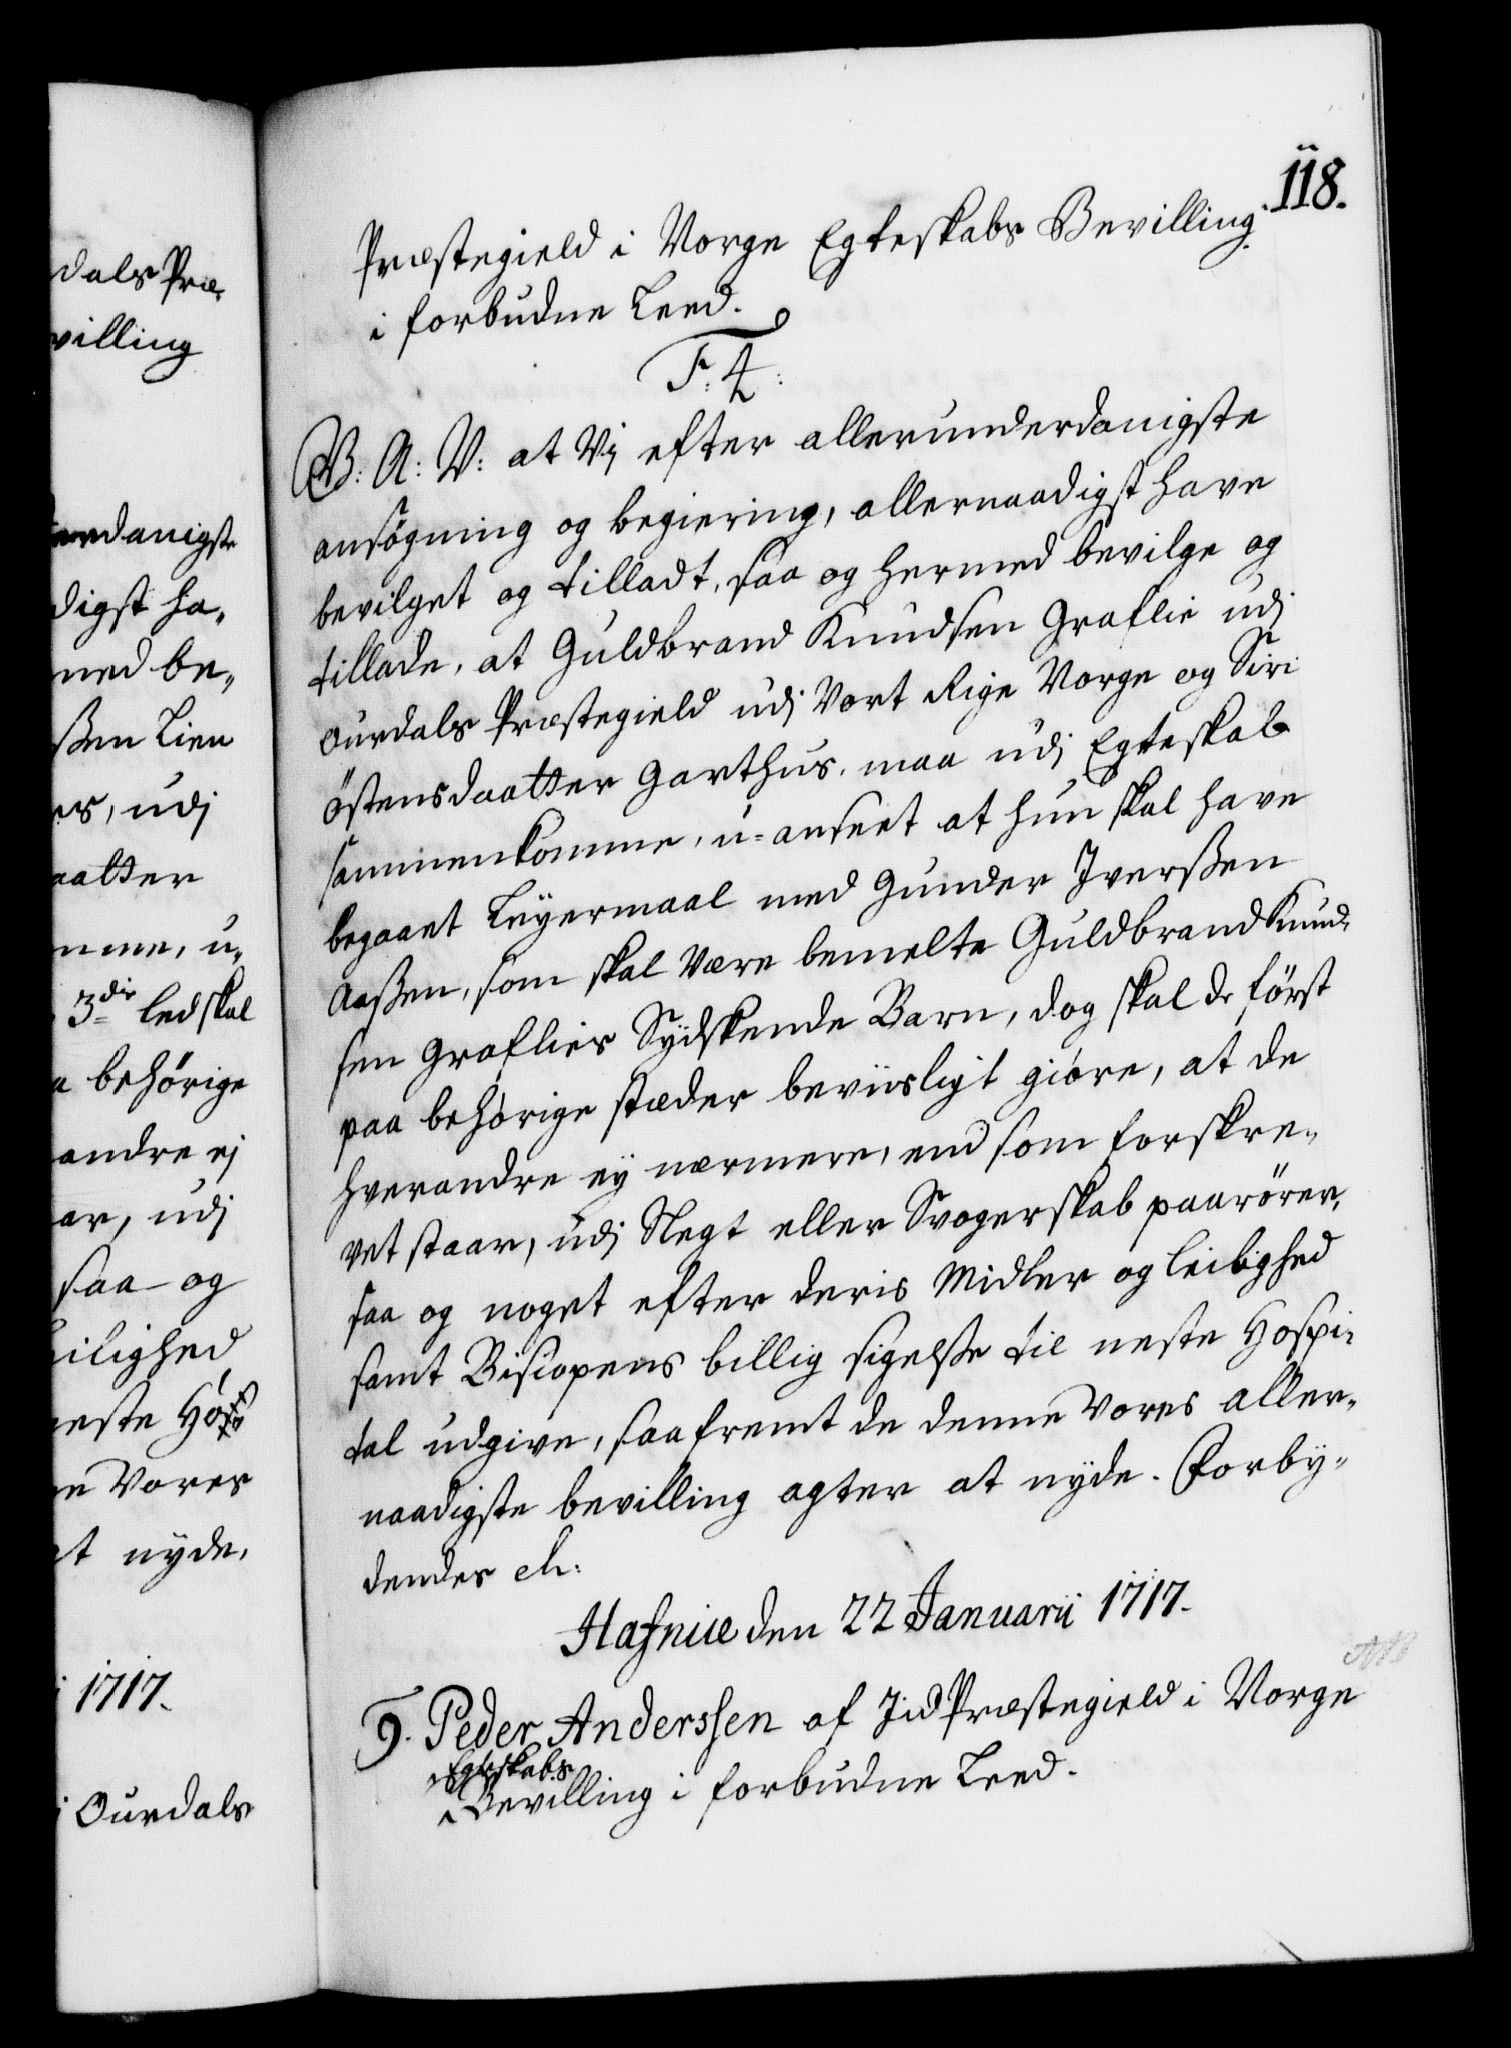 118.
dals Præ-
villing
erdanigste
digst ha-
med be-
ßen Lien
es, udj
aatter
mme, u-
3die led skal
a behörige
andre ej
ar, udj
saa og
eilighed
neste
ne Vores
at nÿde.
1717.
Ourdals
Præstegield i Norge Egteskabs Bevilling
i forbudne Leed.
F: 4:
V: A: V: at Vj efter allerunderdanigste
ansøgning og begiering, allernaadigst have
bevilget og tilladt, saa og hermed bevilge og
tillade, at Guldbrand Knudsen Graflie udj
Ourdals Præstegield udj Vort Rige Norge og Siri
Östensdaatter Garthus, maa udj Egteskab
sammenkomme, u-anseet at hun skal have
begaaet Leÿermaal med Gunder Iverßen
Aaßen, som skal Være bemelte Guldbrand Knud-
sen Graflies Sÿdskende Barn, dog skal de först
paa behörige stæder beviisligt giöre, at de
hverandre eÿ nærmere, end som forskre-
vet staar, udj Slegt eller Svogerskab paarörer,
saa og noget efter deris Midler og leilighed
samt Biscopens billig sigelße til neste Hospi-
tal udgive, saafremt de denne Vores aller-
naadigste bevilling agter at nÿde. Forbÿ-
dendes etc:
Hafniæ den 22 Januarii 1717.
9. Peder Anderssen af Jid Præstegield i Norge
Egteskabs
Bevilling i forbudne Leed.